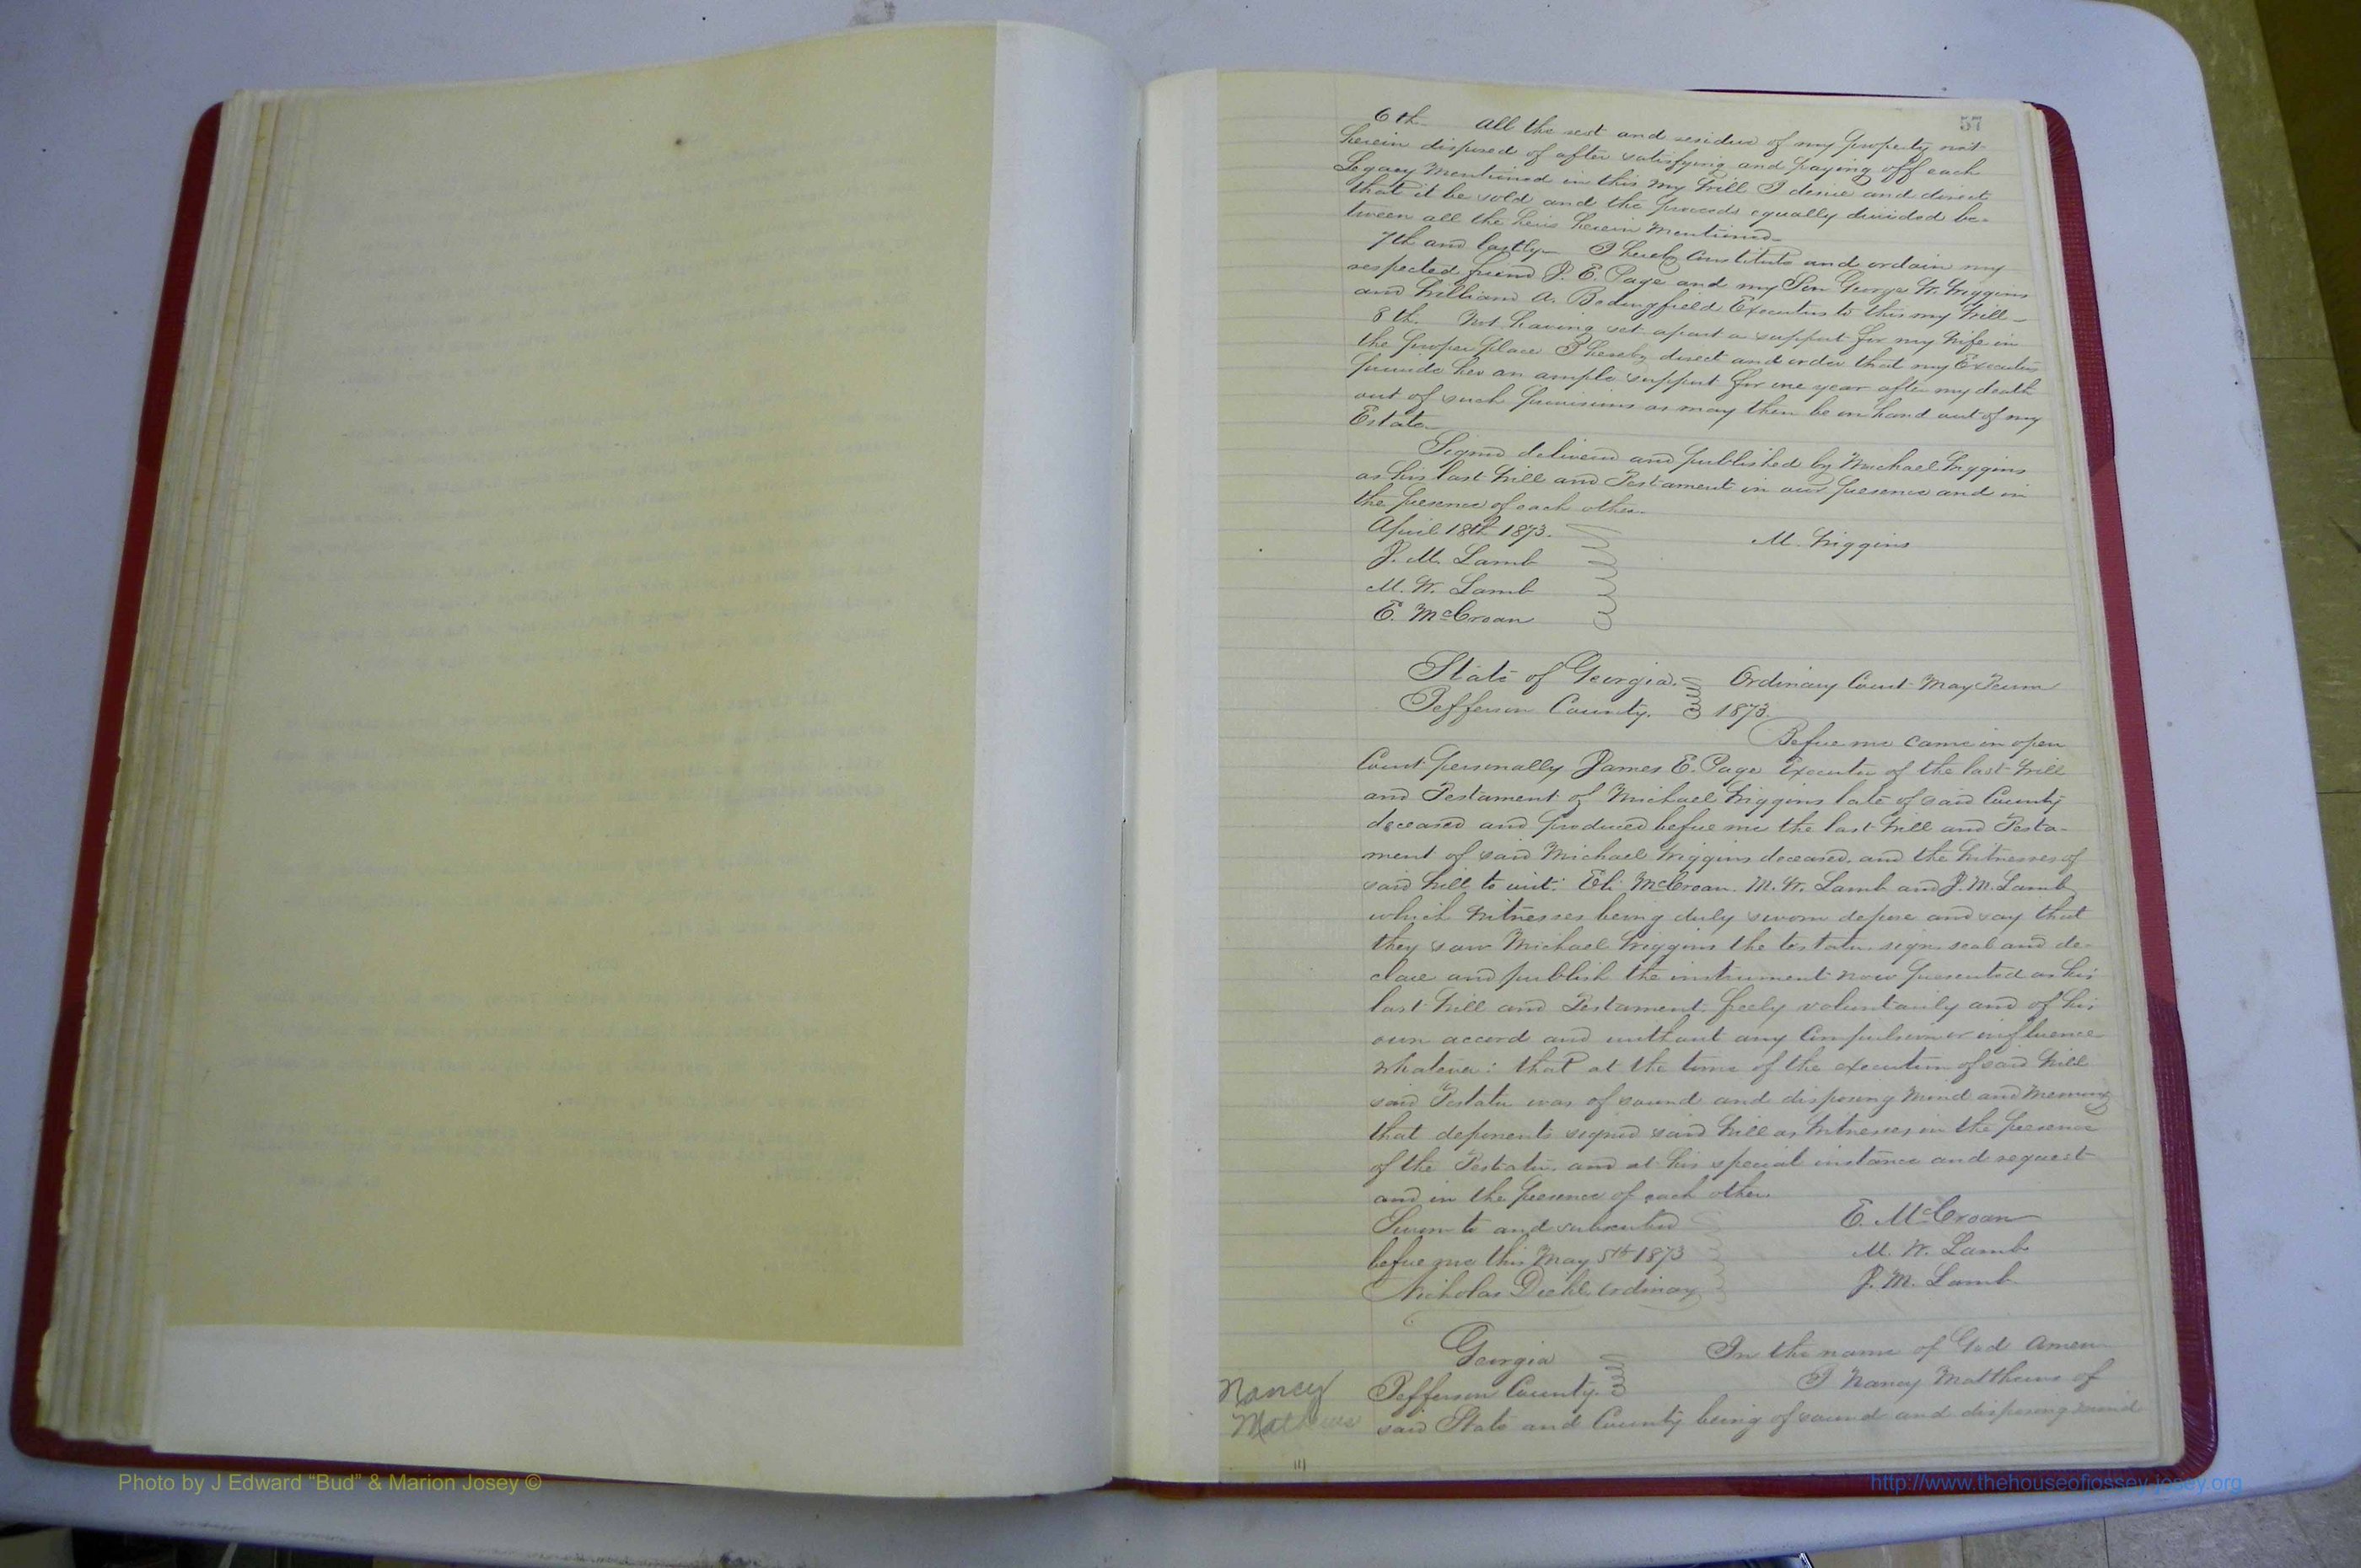 57
6th All the rest and residue of my property not
herein disposed of after satisfying and paying off each
Legacy mentioned in this my Will I desire and direct
that it be sold and the proceeds equally divided be-
tween all the heirs herein mentioned
7th and lastly I hereby Constitute and ordain my
respected friend J. E. Page and my Son George W. Wiggins
and William A. Bedingfield Executors to this my Will
8th. Not having set apart a support for my Wife in
the proper place I hereby direct and order that my Executors
provide her an ample support for one year after my death
out of such provisions as may then be on hand out of my
Estate
Signed delivered and published by Michael Wiggins
as his last Will and Testament in our presence and in
the presence of each other.
April 18th 1873. M. Wiggins
J. M. Lamb
M. W. Lamb
E. McCroan
State of Georgia. Ordinary Court May Term
Jefferson County. 1873.
Before me came in open
Court personally James E. Page Executor of the last Will
and Testament of Michael Wiggins late of said County
deceased and produced before me the last Will and Testa-
ment of said Michael Wiggins deceased, and the Witnesses of
said Will to wit: Eli McCroan. M. W. Lamb and J. M. Lamb
which Witnesses being duly sworn depose and say that
they saw Michael Wiggins the testator sign seal and de-
clare and publish the instrument now presented as his
last Will and Testament freely voluntarily and of his
own accord and without any Compulsion or influence
whatever: that at the time of the execution of said Will
said Testator was of sound and disposing mind and memory
that deponents signed said Will as Witnesses in the presence
of the Testator and at his special instance and request
and in the presence of each other
Sworn to and subscribed E. McCroan
before me this May 5th 1873 M. W. Lamb
Nicholas Diehl Ordinary J. M. Lamb
Georgia In the name of God Amen
Jefferson County. I Nancy Matthews of
said State and County being of sound and disposing mind
Nancy
Mathews
Photo by J Edward “Bud” & Marion Josey ©
http://www.thehouseofjossey-josey.org